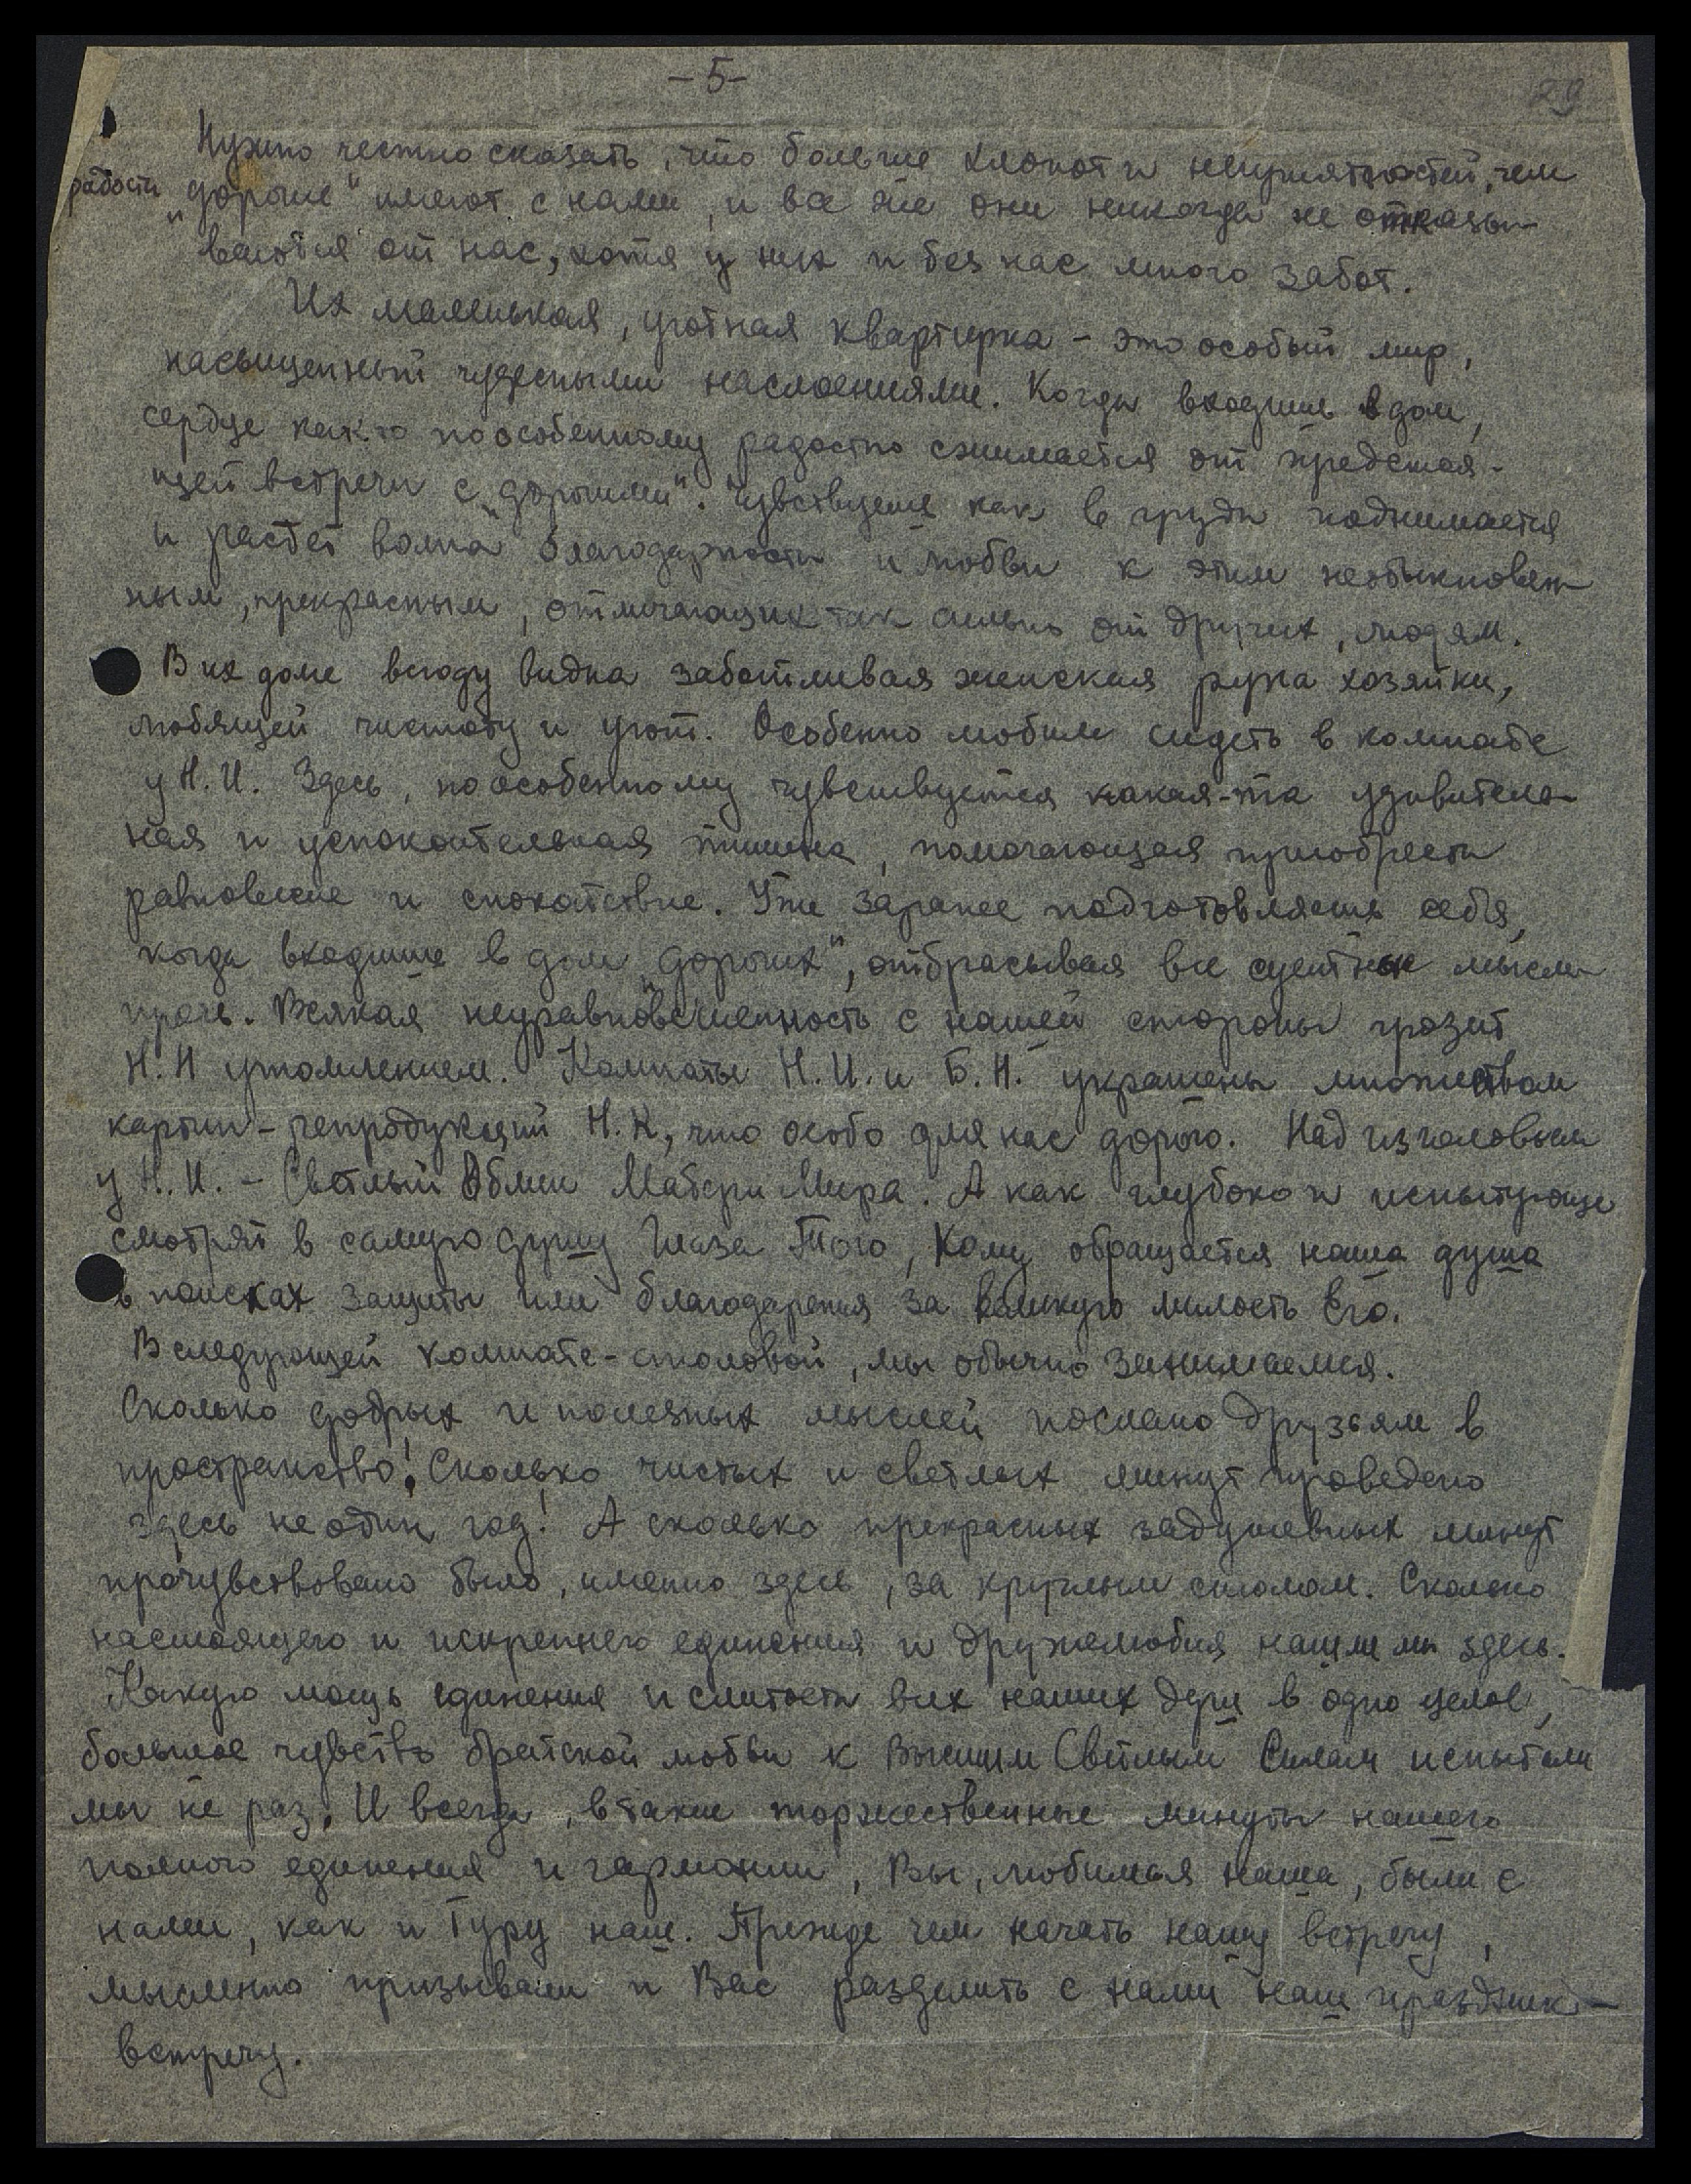 -5-
29
Нужно честно сказать, что больше хлопот и неприятностей, чем
радости „дорогие" имеют с нами, и все же они никогда не отказы-
ваются от нас, хотя у них и без нас много забот.
Их маленькая, уютная квартирка - это особый мир,
насыщенный чудесными наслоениями. Когда входишь в дом,
сердце как-то по особенному радостно сжимается от предстоя-
щей встречи с „дорогими". Чувствуешь как в груди поднимается
и растет волна благодарности и любви к этим необыкновен-
ным, прекрасным, отличающихся так сильно от других, людям.
В их доме всюду видна заботливая женская рука хозяйки,
любящей чистоту и уют. Особенно любим сидеть в комнате
у Н.И. Здесь, по особенному чувствуется какая-та удивитель-
ная и успокоительная тишина, помогающая приобрести
равновесие и спокойствие. Уже заранее подготовляешь себя,
когда входишь в дом „дорогих", отбрасывая все суетные мысли
прочь. Всякая неуравновешенность с нашей стороны грозит
Н.И утомлением. Комнаты Н.И. и Б.Н. украшены множеством
картин-репродукций Н.К, что особо для нас дорого. Над изголовьем
у Н.И. - Светлый Облик Матери Мира. А как глубоко и испытующе
смотрят в самую душу Глаза Того, Кому обращается наша душа
в поисках защиты или благодарения за великую милость Его.
В следующей комнате-столовой, мы обычно занимаемся.
Сколько добрых и полезных мыслей послано друзьям в
пространство! Сколько чистых и светлых минут проведено
здесь не один год! А сколько прекрасных задушевных минут
прочувствовано было, именно здесь, за круглым столом. Сколько
настоящего и искреннего единения и дружелюбия нашли мы здесь.
Какую мощь единения и слитости всех наших душ в одно целое,
большое чувство братской любви к Высшим Светлым Силам испытали
мы не раз. И всегда, в такие торжественные минуты нашего
полного единения и гармонии, Вы, любимая наша, были с
нами, как и Гуру наш. Прежде чем начать нашу встречу,
мысленно призывали и Вас разделить с нами наш праздник-
встречу.